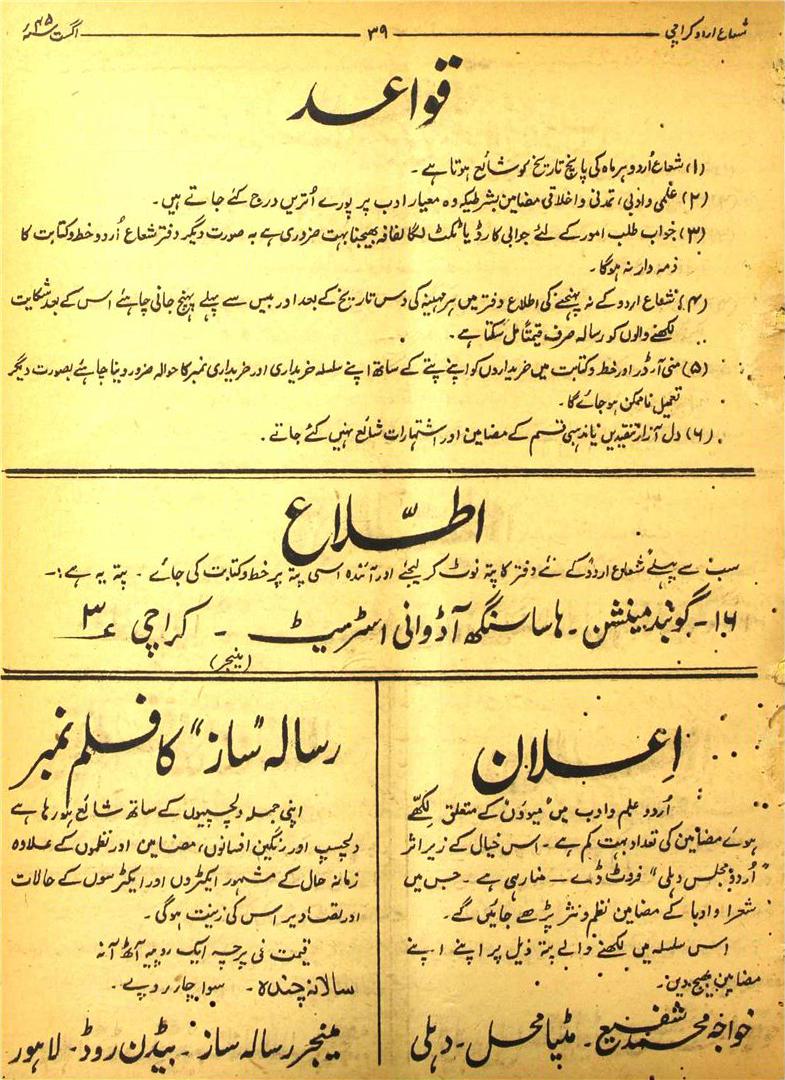 شعاع اردو کراچی
۳۹
اگست ۴۵ء
قواعد
(۱) شعاع اُردو ہر ماہ کی پانچ تاریخ کو شائع ہوتا ہے۔
(۲) علمی و ادبی، تمدنی و اخلاقی مضامین بشرطیکہ وہ معیار ادب پر پورے اُتریں درج کئے جاتے ہیں۔
(۳) جواب طلب امور کے لئے جوابی کارڈ یا ٹکٹ لگا لفافہ بھیجنا بہت ضروری ہے بہ صورت دیگر دفتر شعاع اُردو خط و کتابت کا
ذمہ دار نہ ہوگا۔
(۴) شعاع اردو کے نہ پہنچنے کی اطلاع دفتر میں ہر مہینہ کی دس تاریخ کے بعد اور بیس سے پہلے پہنچ جانی چاہئے اس کے بعد شکایت
لکھنے والوں کو رسالہ صرف قیمتاً مل سکتا ہے۔
(۵) منی آرڈر اور خط و کتابت میں خریداروں کو اپنے پتے کے ساتھ اپنے سلسلہ خریداری اور خریداری نمبر کا حوالہ ضرور دینا چاہئے بصورت دیگر
تعمیل ناممکن ہوجائے گا۔
(۶) دل آزار تنقیدیں یا مذہبی قسم کے مضامین اور اشتہارات شائع نہیں کئے جاتے۔
اطلاع
سب سے پہلے شعاع اردو کے نئے دفتر کا پتہ نوٹ کر لیجئے اور آئندہ اسی پتہ پر خط و کتابت کی جائے۔ پتہ یہ ہے:۔
۱۶۔ گوبند مینشن۔ ہاسا سنگھ آڈوانی اسٹریٹ ۔ کراچی ۳
(منیجر)
اِعلان
اُردو علم و ادب میں میووں کے متعلق لکھے
ہوئے مضامین کی تعداد بہت کم ہے۔ اس خیال کے زیر اثر
"اُردو مجلس دہلی" فروٹ ڈے۔ منا رہی ہے۔ جس میں
شعرا و ادبا کے مضامین نظم و نثر پڑھے جائیں گے۔
اس سلسلہ میں لکھنے والے پتہ ذیل پر اپنے اپنے
مضامین بھیج دیں:
خواجہ محمد شفیع۔ مٹیا محل۔ دہلی
رسالہ "ساز" کا فلم نمبر
اپنی جملہ دلچسپیوں کے ساتھ شائع ہو رہا ہے
دلچسپ اور رنگین افسانوں، مضامین اور نظموں کے علاوہ
زمانہ حال کے مشہور ایکٹروں اور ایکٹرسوں کے حالات
اور تصاویر اس کی زینت ہوگی۔
قیمت فی پرچہ ایک روپیہ آٹھ آنہ
سالانہ چندہ۔ سوا چار روپے۔
منیجر رسالہ ساز۔ بیڈن روڈ۔ لاہور